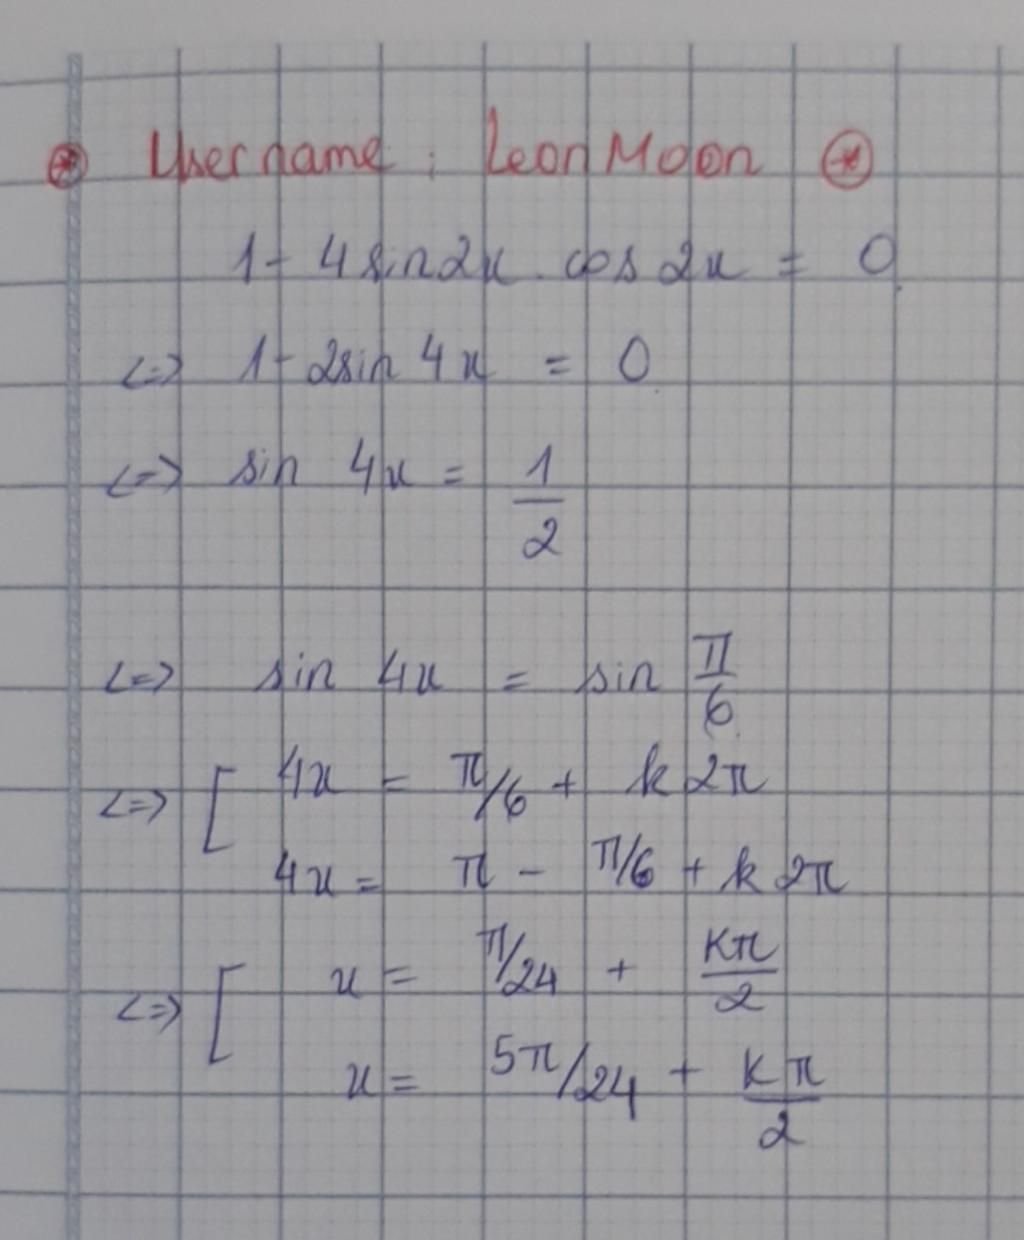 ⊛ Username : LeonMoon ⊛
1 - 4 sin2x . cos 2x = 0
<=> 1 - 2sin 4x = 0
<=> sin 4x = 1/2
<=> sin 4x = sin π/6
<=> [ 4x = π/6 + k2π
4x = π - π/6 + k2π
<=> [ x = π/24 + kπ/2
x = 5π/24 + kπ/2